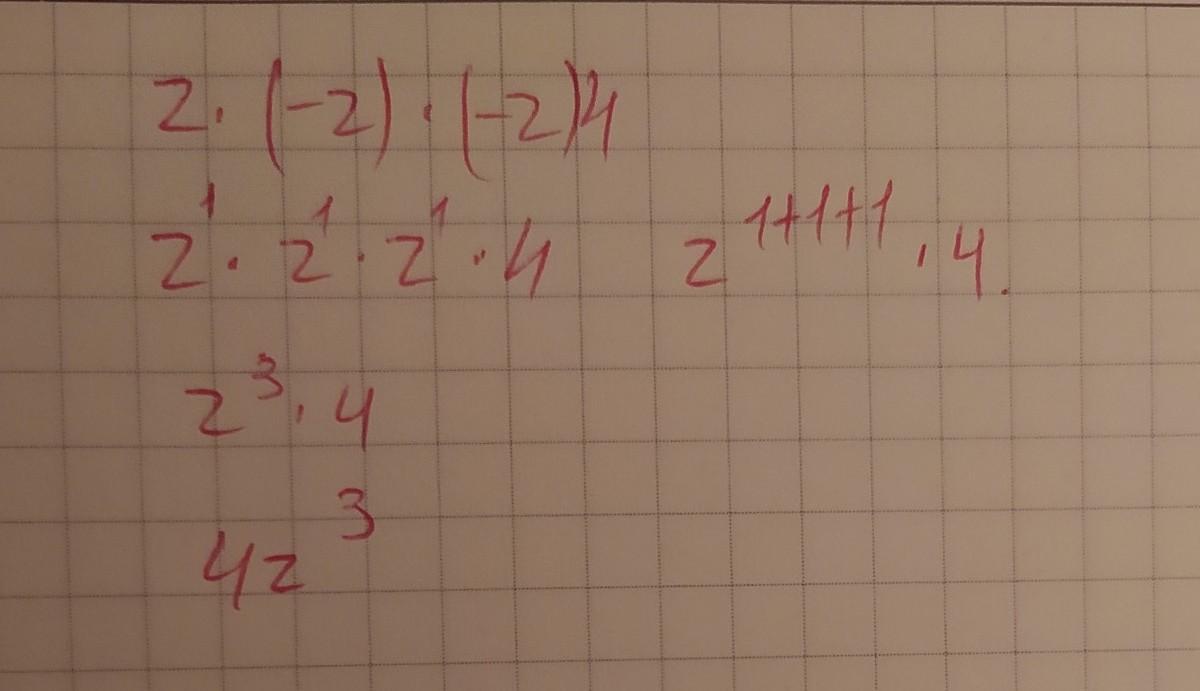 z · (-z) · (-z)4
z¹ · z¹ · z¹ · 4 z¹⁺¹⁺¹ · 4.
z³ · 4
4z³